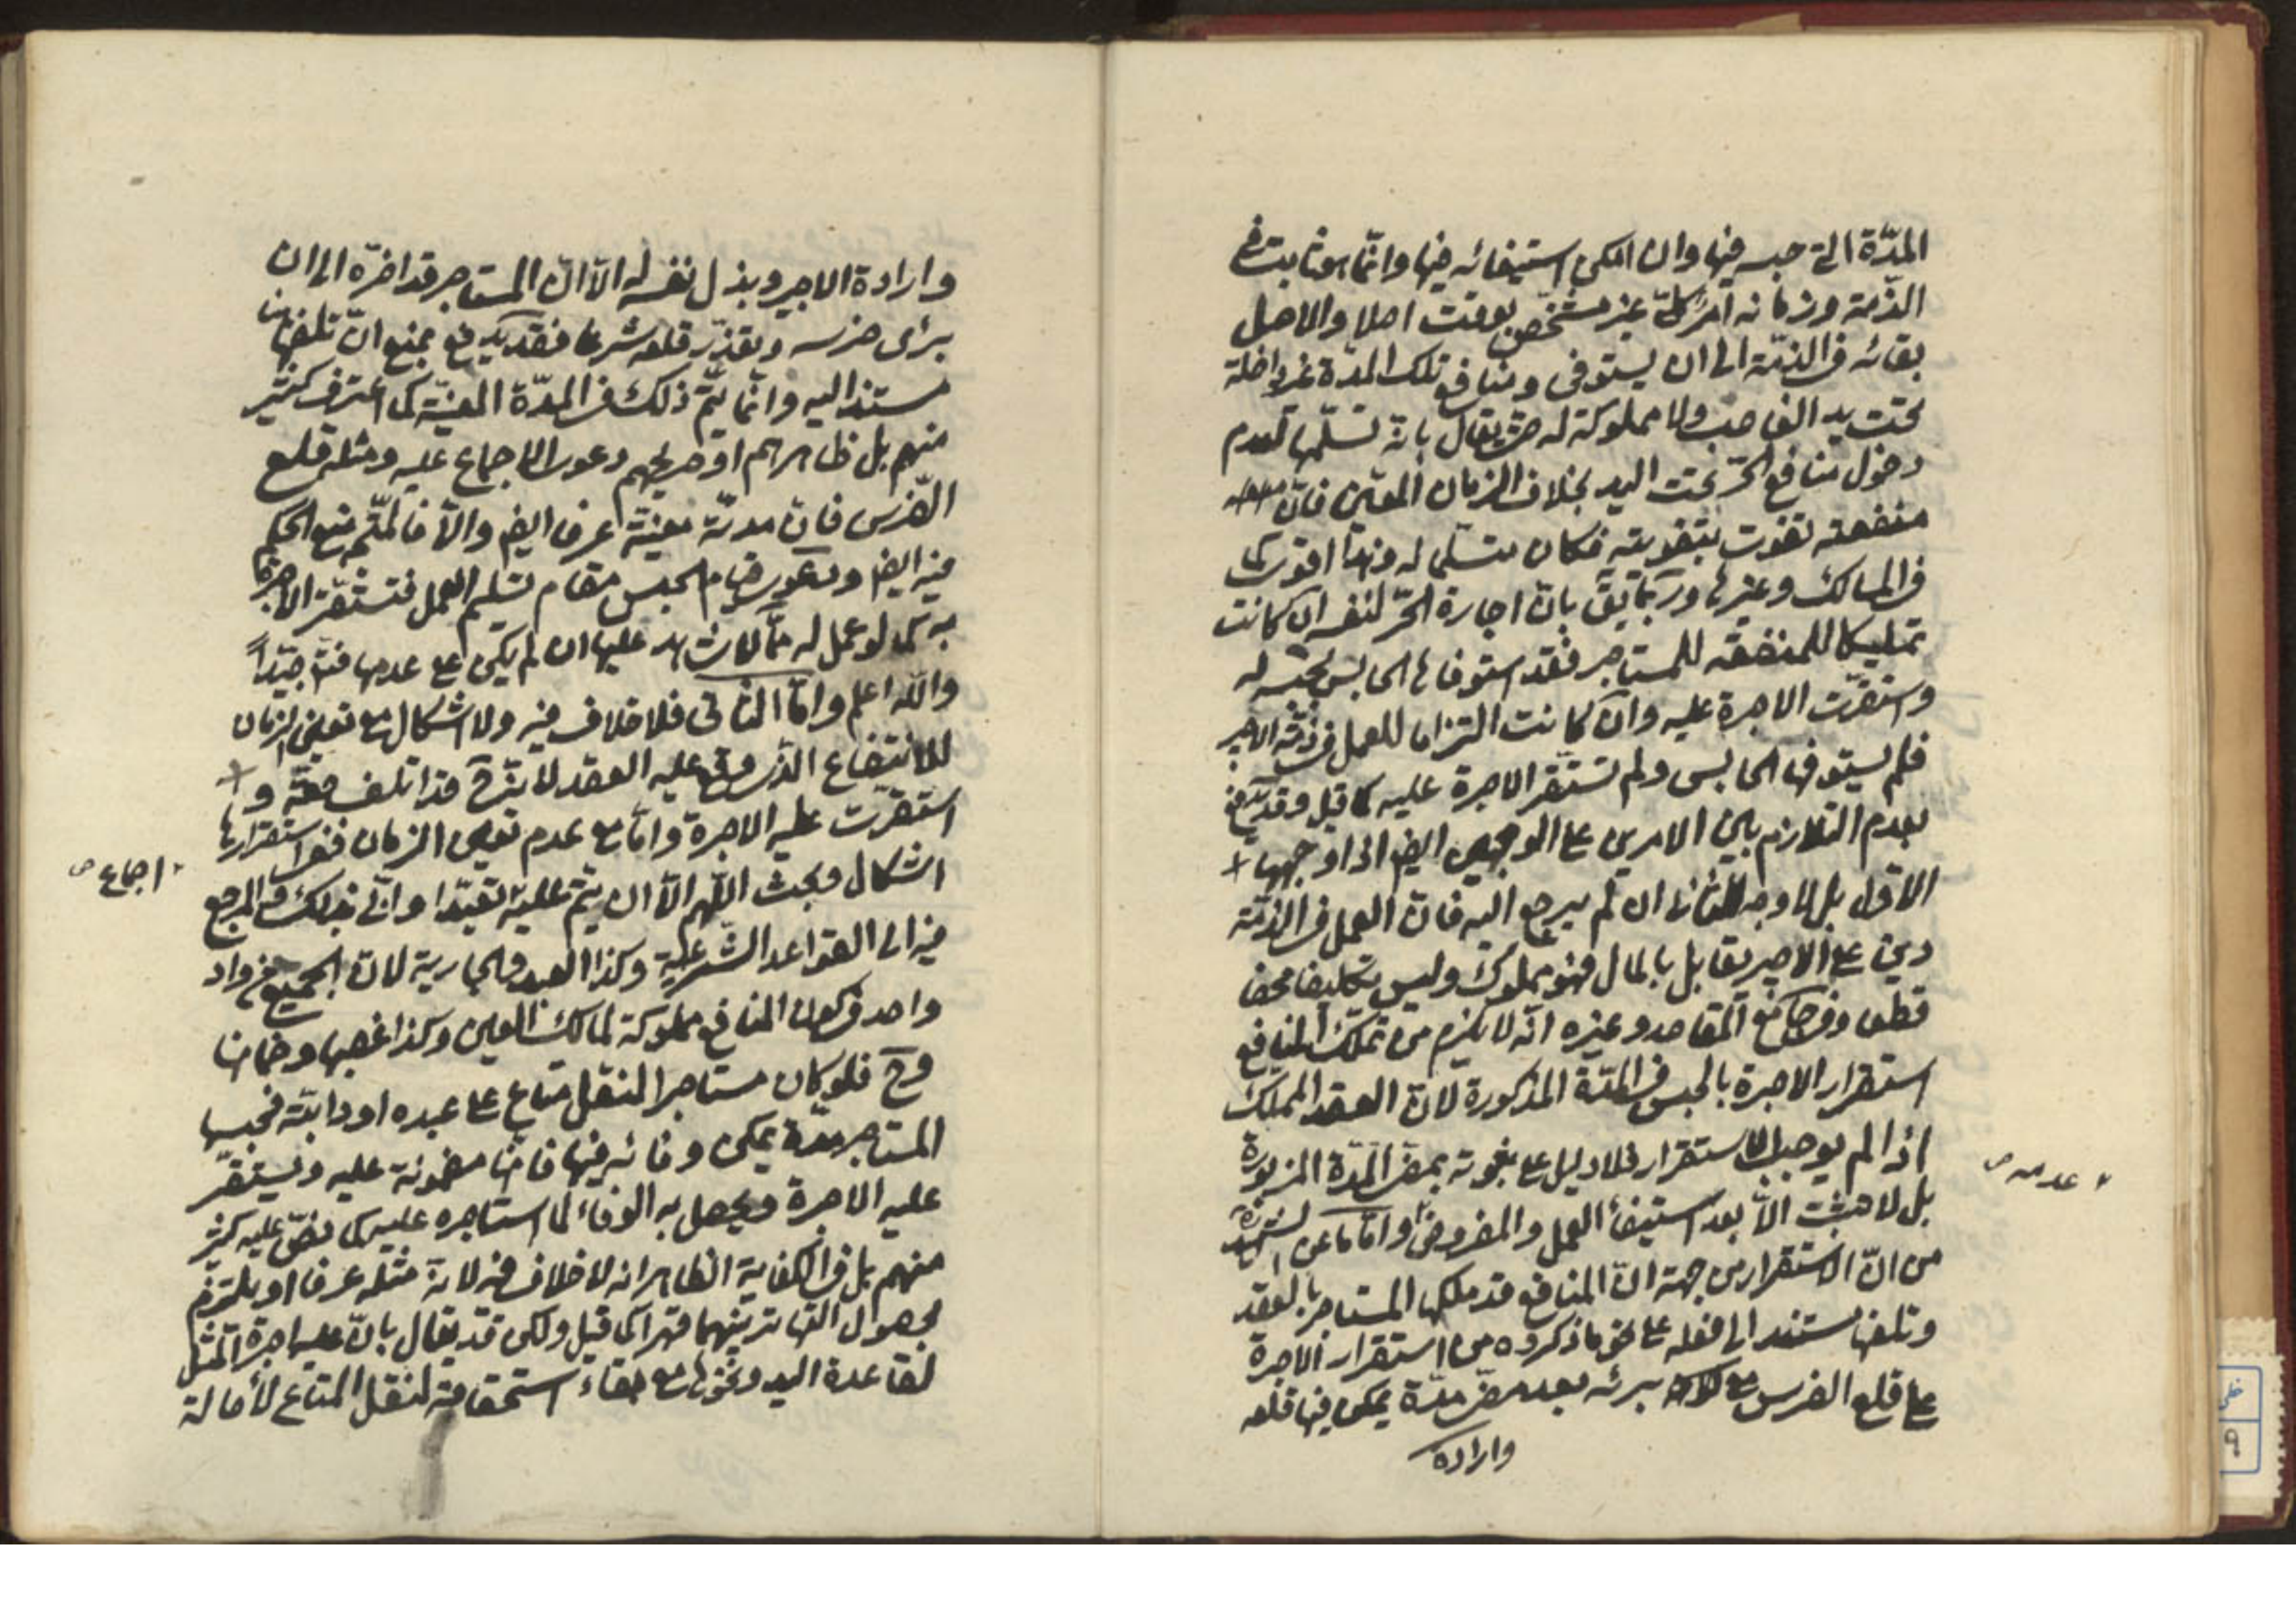 المدّة التي حبسه فيها وان امكن استيفائه فيها وانّما هو ثابت في
الذّمة وزمانه امر كلّي غير مشخّص بوقت اصلا والاصل
بقائه في الذمّة الى ان يستوفى ومنافع تلك المدّة غير داخلة
تحت يد الغاصب ولا مملوكة له حتى يقال بانه تسلّمها لعدم
دخول منافع الحرّ تحت اليد بخلاف الزمان المعيّن فانّ
منفعته تفوت بتفويته فكان متسلّما له وهذا اقوى كما
في المسالك وغيرها وربّما يق بانّ اجارة الحرّ لنفسه ان كانت
تمليكا للمنفعة للمستاجر فقد استوفاها الحابس بحبسه له
واستقرّت الاجرة عليه وان كانت التزاما للعمل في ذمّة الاجير
فلم يستوفها الحابس ولم تستقر الاجرة عليه كما قيل وقد يدفع
بعدم التلازم بين الامرين على الوجهين ايض اذ اوجهها +
الاول بل لا وجه للثاني ان لم يرجع اليه فانّ العمل في الذمّة
دين على الاجير يقابل بالمال فهو مملوك وليس تكليفا محضا
قطعا وفي جامع المقاصد وغيره انّه لا يلزم من تملّك المنافع
استقرار الاجرة بالحبس في المدّة المذكورة لانّ العقد المملك
اذا لم يوجب الاستقرار فلا دليل على ثبوته بمضي المدّة المزبورة
عدمه ص
بل لا يثبت الّا بعد استيفاء العمل والمفروض وامّا ما عن
من انّ الاستقرار من جهة انّ المنافع قد ملكها المستاجر بالعقد
وتلفها مستند الى فعله على نحو ما ذكروه من استقرار الاجرة
على قلع الضرس مع برئه بعد مضي مدّة يمكن فيها قلعه
وارادة
وارادة الاجير وبذل نفسه له الّا انّ المستاجر قد اخّره الى ان
برئ ضرسه وتعذّر قلعه شرعا فقد يدفع بمنع انّ تلفها
مستندا اليه وانّما يتمّ ذلك في المدّة المعيّنة كما اعترف كثير
منهم بل ظاهرهم او صريحهم دعوى الاجماع عليه ومثله قلع
الضّرس فانّ مدته معيّنة عرفا ايض والّا فالمتّجه منع الحكم
فيه ايض ودعوى قيام الحبس مقام تسليم العمل فتستقرّ الاجرة
به كما لو عمل له ممّا لا شاهد عليها ان لم يكن على عدمها فتدبّر جيّداً
والله اعلم وامّا الثاني فلا خلاف فيه ولا اشكال مع تعيين الزمان
للانتفاع الذي وقع عليه العقد لانّه ح قد اتلف حقّه و +
استقرّت عليه الاجرة وامّا مع عدم تعيين الزمان ففي استقرارها
اجماع ص
اشكال وبحث اللّهم الّا ان يتمّ عليه تعبّدا وانّى بذلك والمرجع
فيه الى القواعد الشّرعية وكذا العبد والجارية لانّ الجميع من واد
واحد في كون المنافع مملوكة لمالك العين وكذا غصبها وضمانها
وح فلو كان مستاجرا لنقل متاع على عبده او دابّته فحبسها
المستاجر مدّة يمكن وفائه فيها فانّها مضمونة عليه ويستقرّ
عليه الاجرة ويحصل به الوفاء لما استاجره عليه كما نصّ عليه كثير
منهم بل في الكفاية الظاهر انه لا خلاف فيه لانه مثله عرفا او يلتزم
بحصول التهاتر بينهما قهرا كما قيل ولكن قد يقال بانّ عليه اجرة المثل
لقاعدة اليد ونحوها مع بقاء استحقاقه لنقل المتاع لأصالة